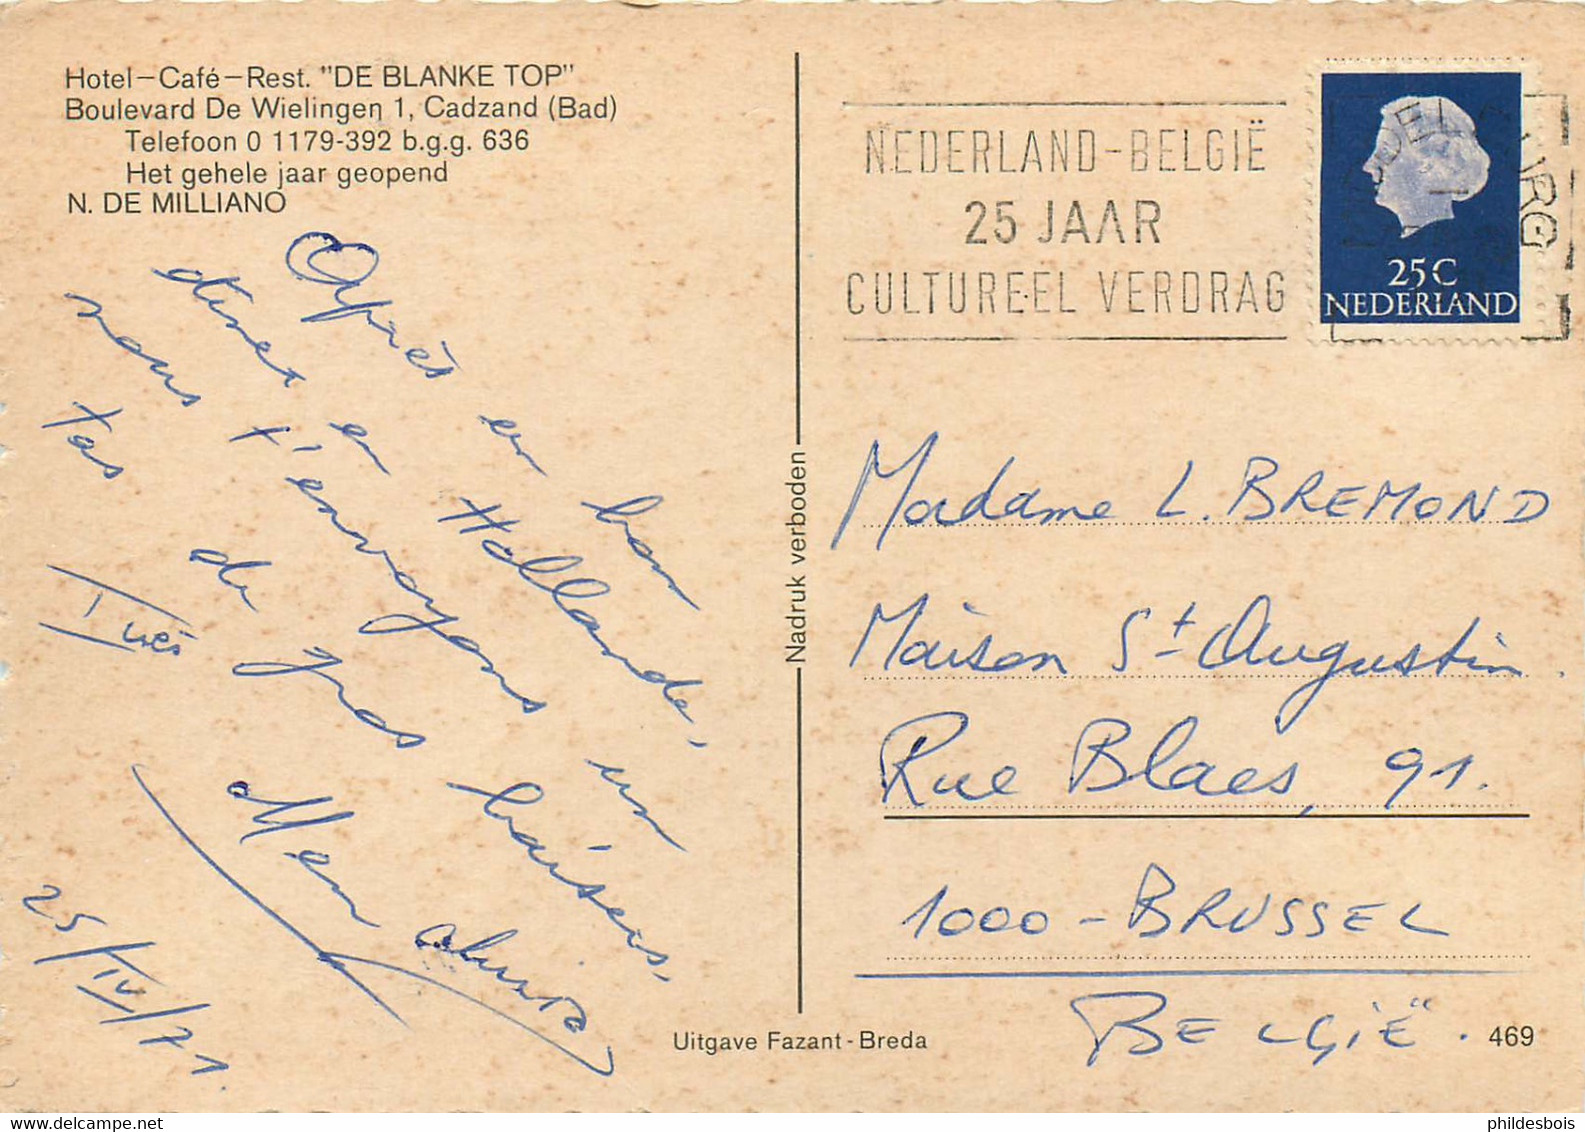 Hotel-Café-Rest. "DE BLANKE TOP"
Boulevard De Wielingen 1, Cadzand (Bad)
Telefoon 0 1179-392 b.g.g. 636
Het gehele jaar geopend
N. DE MILLIANO
Après en bon
diner en Hollande,
nous t'envoyons un
tas de gros baisers,
25/IV/71.
NEDERLAND-BELGIË
25 JAAR
CULTUREEL VERDRAG
MIDDELBURG
25C
NEDERLAND
Nadruk verboden
Madame L. BREMOND
Maison St Augustin.
Rue Blaes, 91.
1000-BRUSSEL
BELGIË.
Uitgave Fazant-Breda
469
https://www.delcampe.net
phildesbois